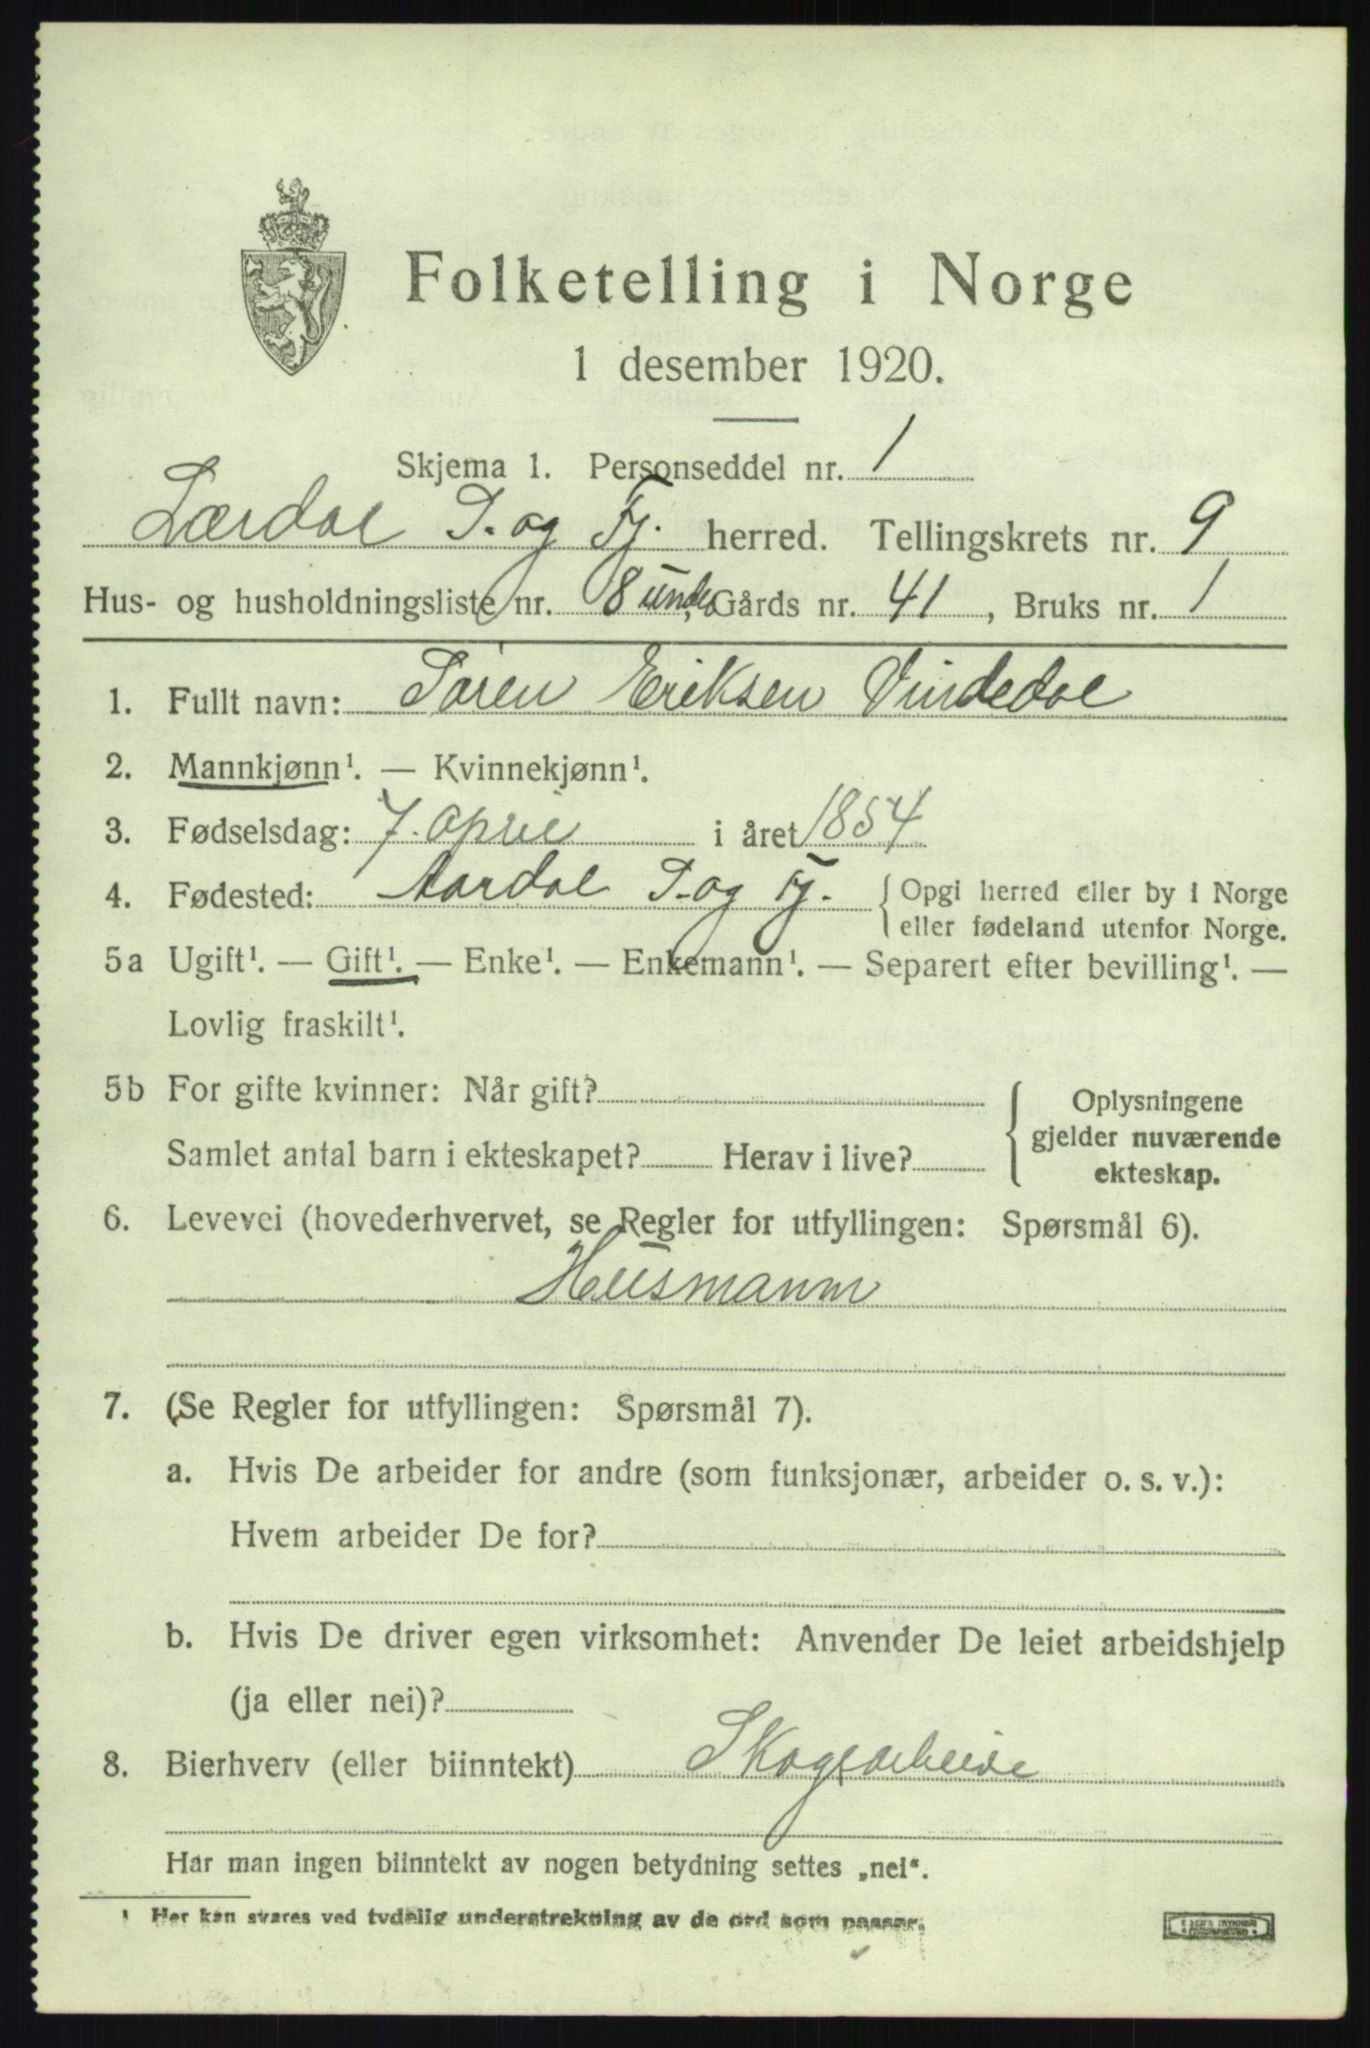 Folketelling i Norge
1 desember 1920.
Skjema 1. Personseddel nr. 1
Lærdal S. og Fj. herred. Tellingskrets nr. 9
Hus- og husholdningsliste nr. 8 , Gårds nr. 41 , Bruks nr. 1
1. Fullt navn: Søren Eriksen Vindedal
2. Mannkjønn¹. — Kvinnekjønn¹.
3. Fødselsdag: 7. april i året 1854
4. Fødested: Aardal S. og Fj. { Opgi herred eller by i Norge
eller fødeland utenfor Norge.
5a Ugift¹. — Gift¹. — Enke¹. — Enkemann¹. — Separert efter bevilling¹. —
Lovlig fraskilt¹.
5b For gifte kvinner: Når gift? { Oplysningene
gjelder nuværende
Samlet antal barn i ekteskapet? Herav i live?
ekteskap.
6. Levevei (hovederhvervet, se Regler for utfyllingen: Spørsmål 6).
Husmann
7. (Se Regler for utfyllingen: Spørsmål 7).
a. Hvis De arbeider for andre (som funksjonær, arbeider o. s. v.):
Hvem arbeider De for?
b. Hvis De driver egen virksomhet: Anvender De leiet arbeidshjelp
(ja eller nei)?
8. Bierhverv (eller biinntekt) Skogsarbeide
Har man ingen biinntekt av nogen betydning settes „nei“.
¹ Her kan svares ved tydelig understrekning av de ord som passer.